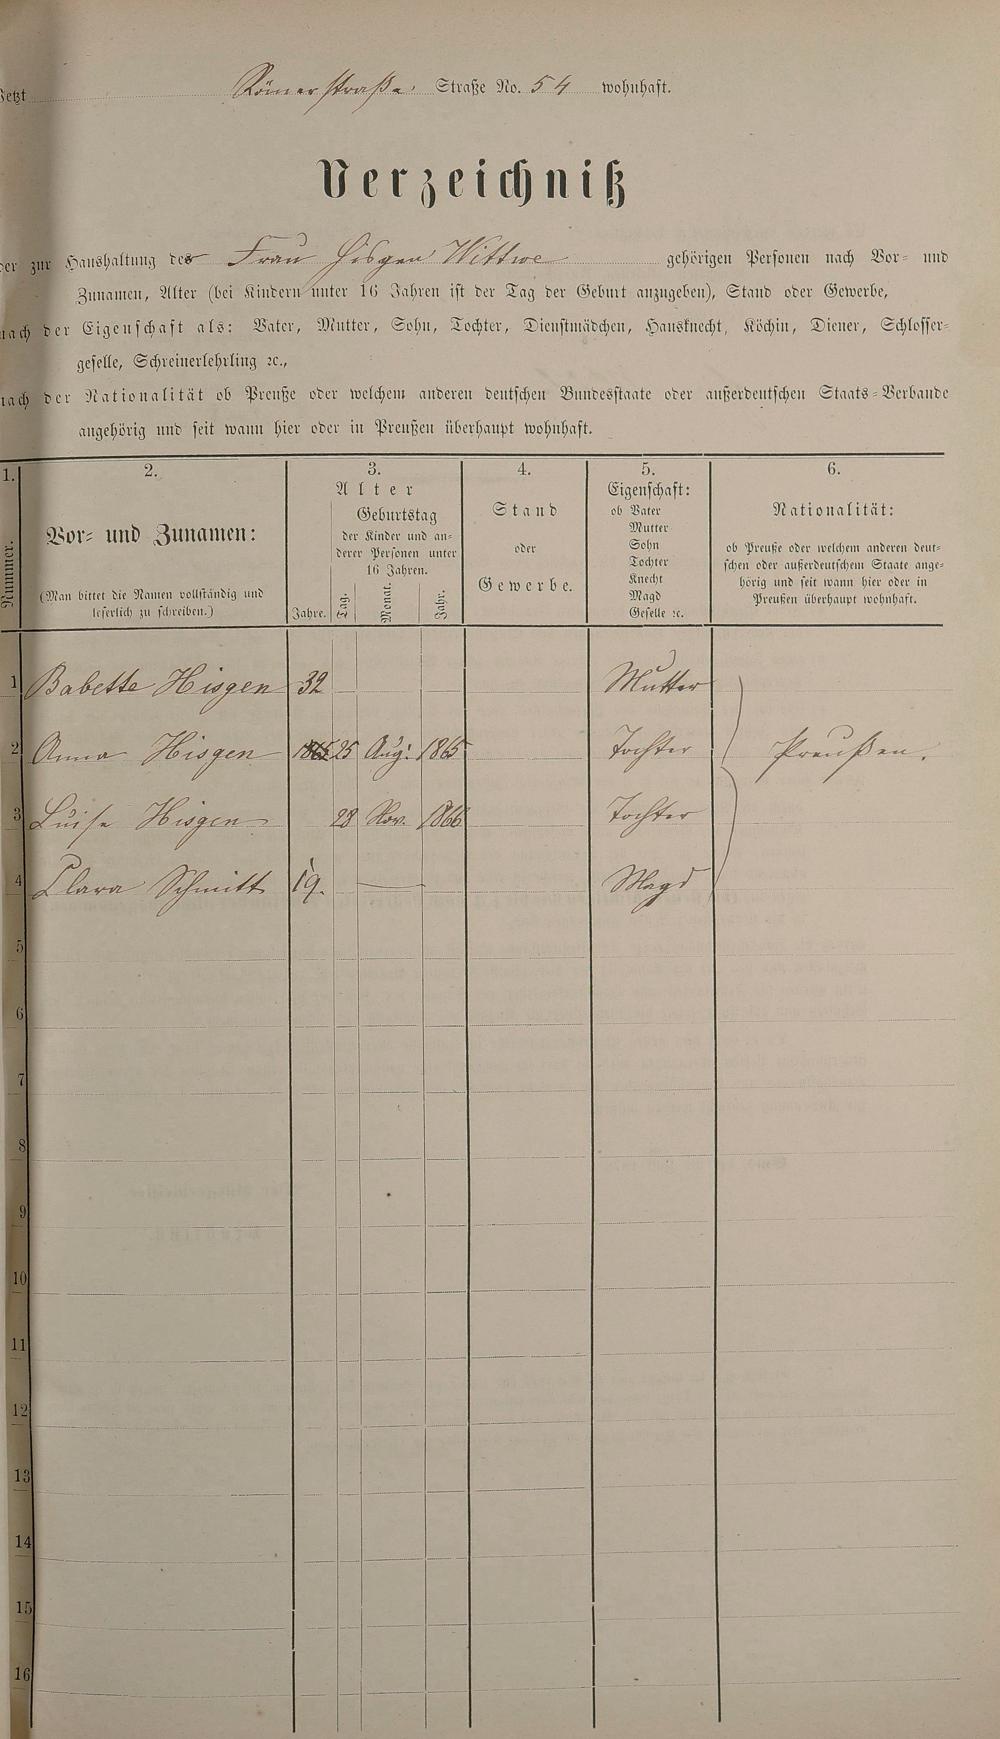 Jetzt Römerstraße. Straße No. 54 wohnhaft.
Verzeichniß
der zur Haushaltung des Frau Hisgen Wittwe gehörigen Personen nach Vor- und
Zunamen, Alter (bei Kindern unter 16 Jahren ist der Tag der Geburt anzugeben), Stand oder Gewerbe,
nach der Eigenschaft als: Vater, Mutter, Sohn, Tochter, Dienstmädchen, Hausknecht, Köchin, Diener, Schlosser-
geselle, Schreinerlehrling ꝛc.,
nach der Nationalität ob Preuße oder welchem anderen deutschen Bundesstaate oder außerdeutschen Staats-Verbande
angehörig und seit wann hier oder in Preußen überhaupt wohnhaft.
1. 2. 3. 4. 5. 6.
Nummer.
Vor- und Zunamen:
(Man bittet die Namen vollständig und
leserlich zu schreiben.)
Alter
Geburtstag
der Kinder und an-
derer Personen unter
16 Jahren.
Jahre. Tag. Monat. Jahr.
Stand
oder
Gewerbe.
Eigenschaft:
ob Vater
Mutter
Sohn
Tochter
Knecht
Magd
Geselle ꝛc.
Nationalität:
ob Preuße oder welchem anderen deut-
schen oder außerdeutschem Staate ange-
hörig und seit wann hier oder in
Preußen überhaupt wohnhaft.
1 Babette Hisgen 32 Mutter
2 Anna Hisgen 1865 25 Aug. 1865 Tochter Preußen.
3 Luise Hisgen 28 Nov. 1866 Tochter
4 Clara Schmitt 19. — Magd
5
6
7
8
9
10
11
12
13
14
15
16